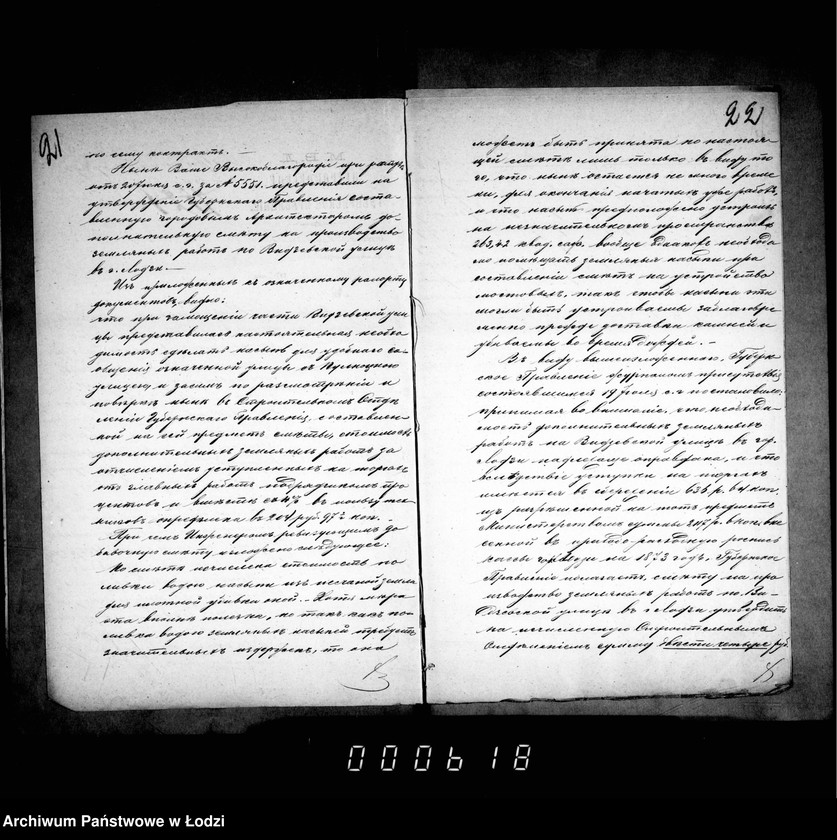 21
по сему контракту. —
Нынѣ Ваше Высокоблагородіе при рапор-
тѣ 20 Іюня с. г. за № 5551. представили на
утвержденіе Губернскаго Правленія соста-
вленную городовымъ Архитекторомъ до-
полнительную смѣту на производство
земляныхъ работъ по Видзевской улицѣ
въ г. Лодзи. —
Изъ приложенныхъ къ означенному рапорту
документовъ видно:
что при замощеніи части Видзевской ули
цы представилась настоятельная необхо-
димость сдѣлать насыпь для удобнаго со-
единенія означенной улицы съ
улицею и засимъ по разсмотрѣніи и
повѣркѣ нынѣ въ Строительномъ Отдѣ
леніи Губернскаго Правленія, составлен-
ной на сей предметъ смѣты, стоимость
дополнительныхъ земляныхъ работъ за
отчисленіемъ уступленныхъ на торгахъ
отъ главныхъ работъ подрядчикомъ про
центовъ и въ пользу
опредѣлена въ 204 руб. 97½ коп.
При семъ Инженеромъ ревизующимъ до
бавочную смѣту изложено слѣдующее:
По смѣтѣ исчислена стоимость по
ливки водою насыпи изъ песчаной земли
для плотной убивки оной. Хотя мѣра
эта вполнѣ полезна, но такъ какъ по-
ливка водою земляныхъ насыпей требуетъ
значительныхъ издержекъ, то она
22
можетъ быть принята по настоя-
щей смѣтѣ лишь только въ виду то
го, что нынѣ остается не много време
ни, для окончанія начатыхъ уже работъ,
и что насыпь предположено устроить
на незначительномъ пространствѣ
263,42 квад. саж. вообще однако необходи
мо помѣщать земляныя насыпи при
составленіи смѣтъ на устройство
мостовыхъ, такъ чтобы насыпи эти
могли быть устроиваемы заблаговре
менно прежде доставки камней и
убиваемы во время дождей. —
Въ виду вышеизложеннаго, Губерн
ское Правленіе журналомъ присутствія
состоявшимся 19 Іюля с. г. постановило:
принимая во вниманіе, что необходи
мость дополнительныхъ земляныхъ
работъ на Видзевской улицѣ въ гор.
Лодзи надлежаще оправдана, и что
вслѣдствіе уступки на торгахъ
имѣется въ сбереженіи 636 р. 64 коп.
изъ разрѣшенной на тотъ предметъ
Министерствомъ суммы вне
сенной въ приходо-расходную роспись
кассы города на 1873 годъ. Губернское
Правленіе полагаетъ, смѣту на про
изводство земляныхъ работъ по Ви-
дзевской улицѣ въ г. Лодзи утвердить
на исчисленную Строительнымъ
Отдѣленіемъ сумму двѣсти четыре руб.
000618
Archiwum Państwowe w Łodzi